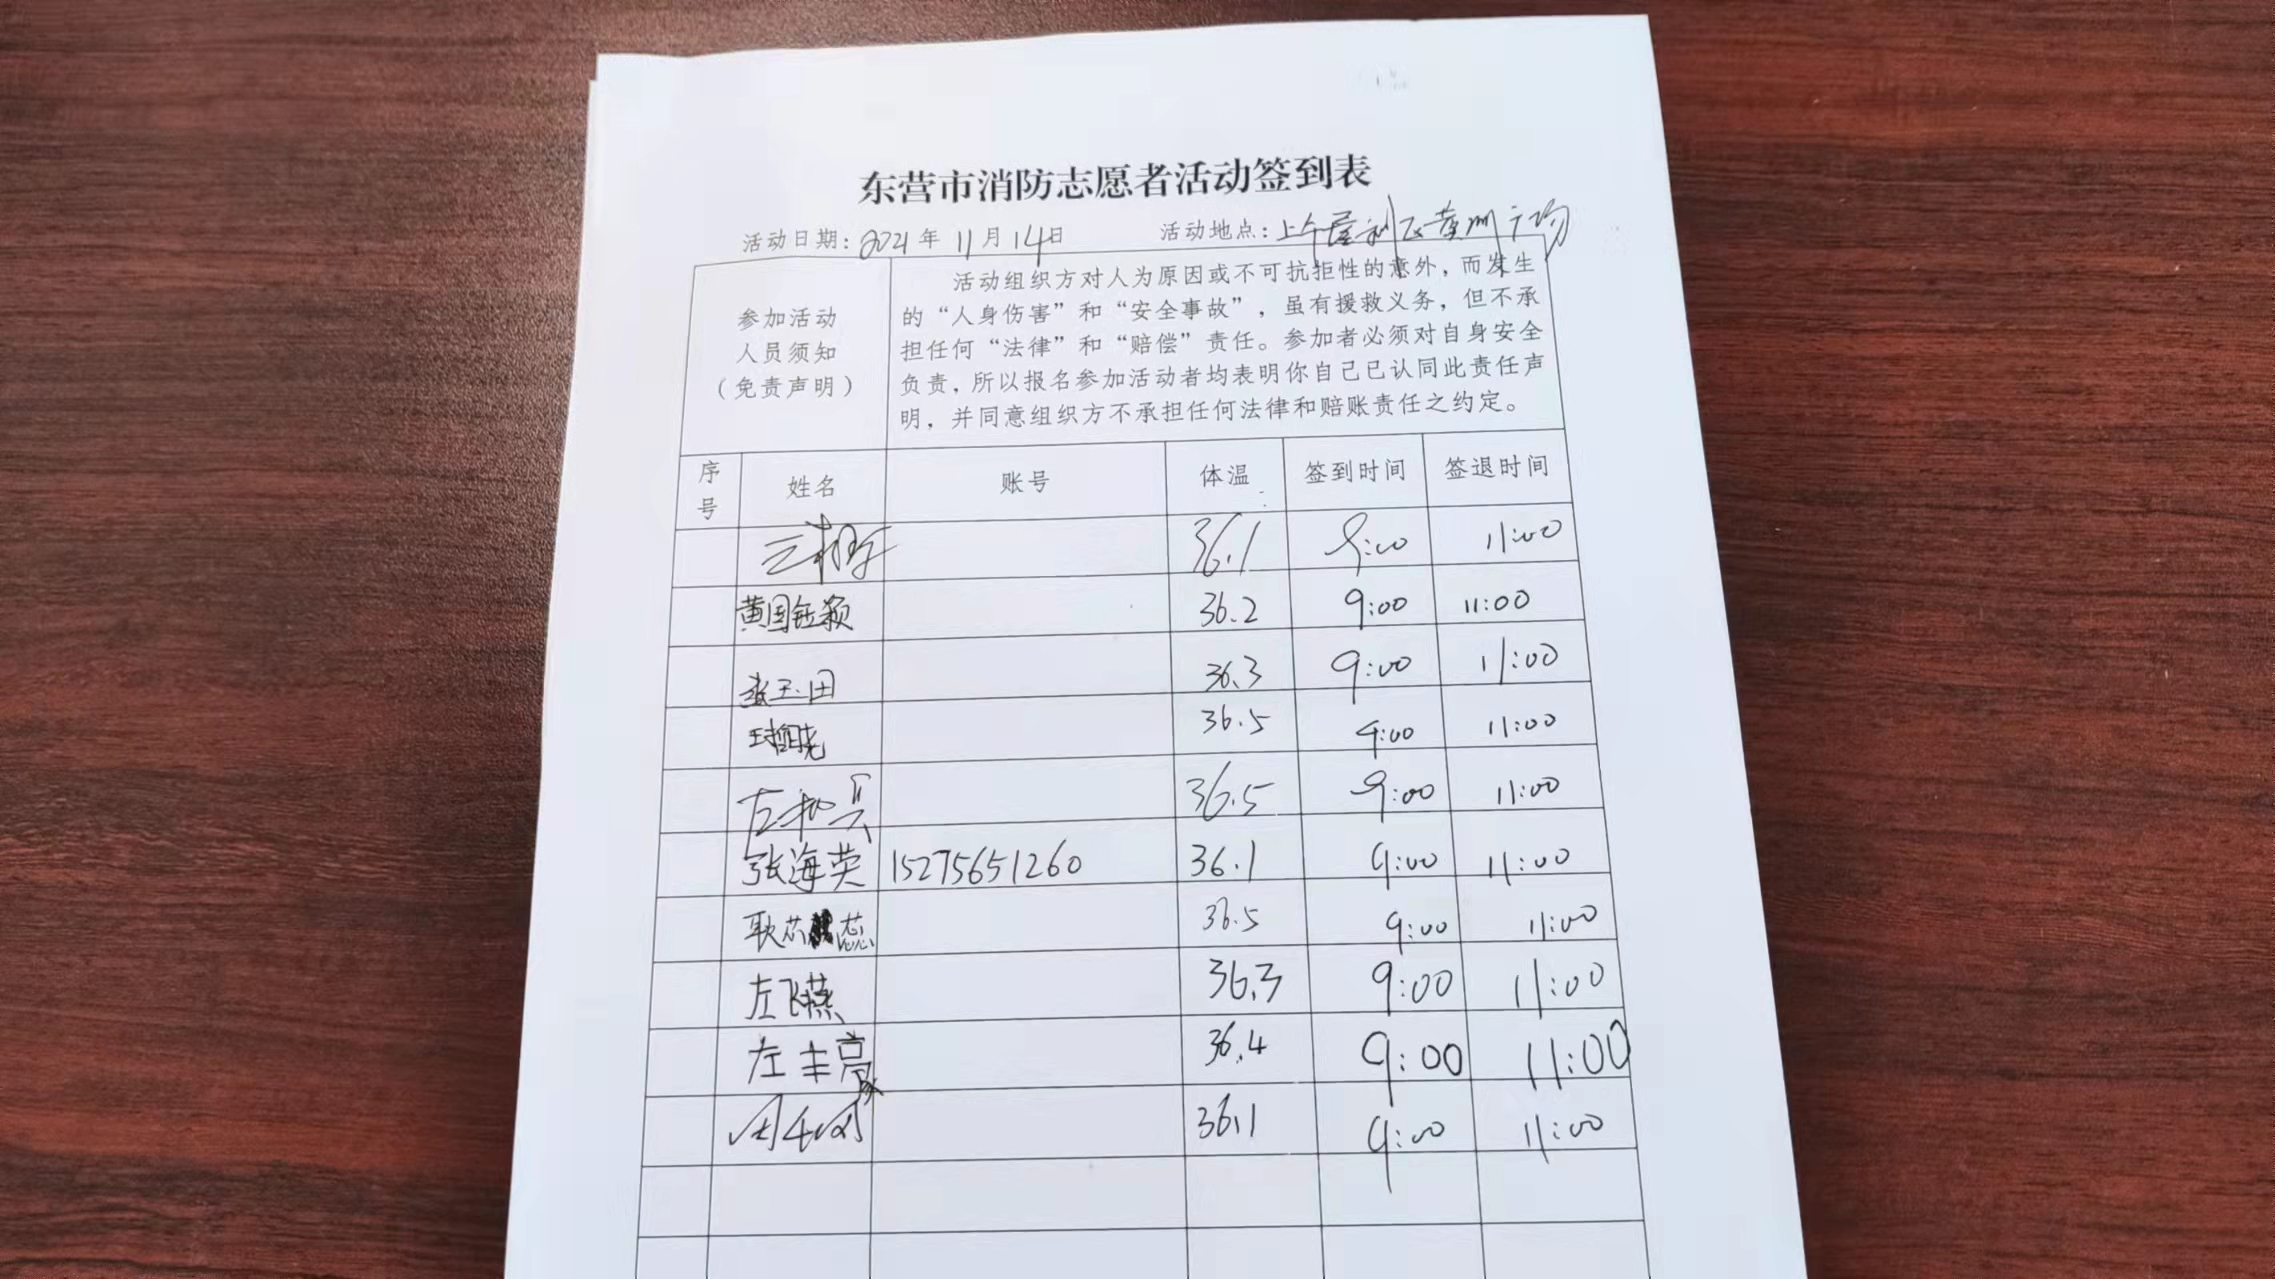 东营市消防志愿者活动签到表
活动日期：2021年11月14日 活动地点：上午 广场
参加活动
人员须知
（免责声明）
活动组织方对人为原因或不可抗拒性的意外，而发生
的“人身伤害”和“安全事故”，虽有援救义务，但不承
担任何“法律”和“赔偿”责任。参加者必须对自身安全
负责，所以报名参加活动者均表明你自己已认同此责任声
明，并同意组织方不承担任何法律和赔账责任之约定。
序号 姓名 账号 体温 签到时间 签退时间
36.1 9:00 11:00
黄国钰颖 36.2 9:00 11:00
张玉田 36.3 9:00 11:00
36.5 9:00 11:00
36.5 9:00 11:00
张海英 15275651260 36.1 9:00 11:00
耿芯蕊 36.5 9:00 11:00
左飞燕 36.3 9:00 11:00
左丰亮 36.4 9:00 11:00
36.1 9:00 11:00